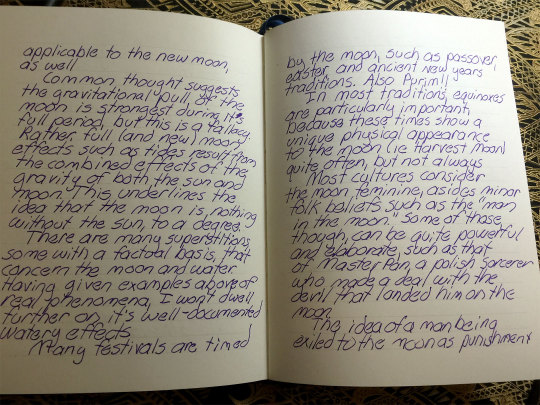 applicable to the new moon,
as well.
Common thought suggests
the gravitational pull of the
moon is strongest during it's
full period, but this is a fallacy.
Rather, full (and new) moon
effects such as tides result from
the combined effects of the
gravity of both the sun and
moon. This underlines the
idea that the moon is nothing
without the sun, to a degree.
There are many superstitions,
some with a factual basis, that
concern the moon and water.
Having given examples above of
real phenomena, I won't dwell
further on, it's well-documented
watery effects.
Many festivals are timed
by the moon, such as passover,
easter, and ancient New years
traditions. Also Purim!
In most traditions, equinoxes
are particularly important
because these times show a
unique physical appearance
to the moon (ie Harvest Moon)
quite often, but not always.
Most cultures consider
the moon feminine, asides minor
folk beliefs such as the "man
in the moon." Some of those,
though, can be quite powerful
and elaborate, such as that
of Master Pan, a polish sorcerer
who made a deal with the
devil that landed him on the
moon.
The idea of a man being
exiled to the moon as punishment